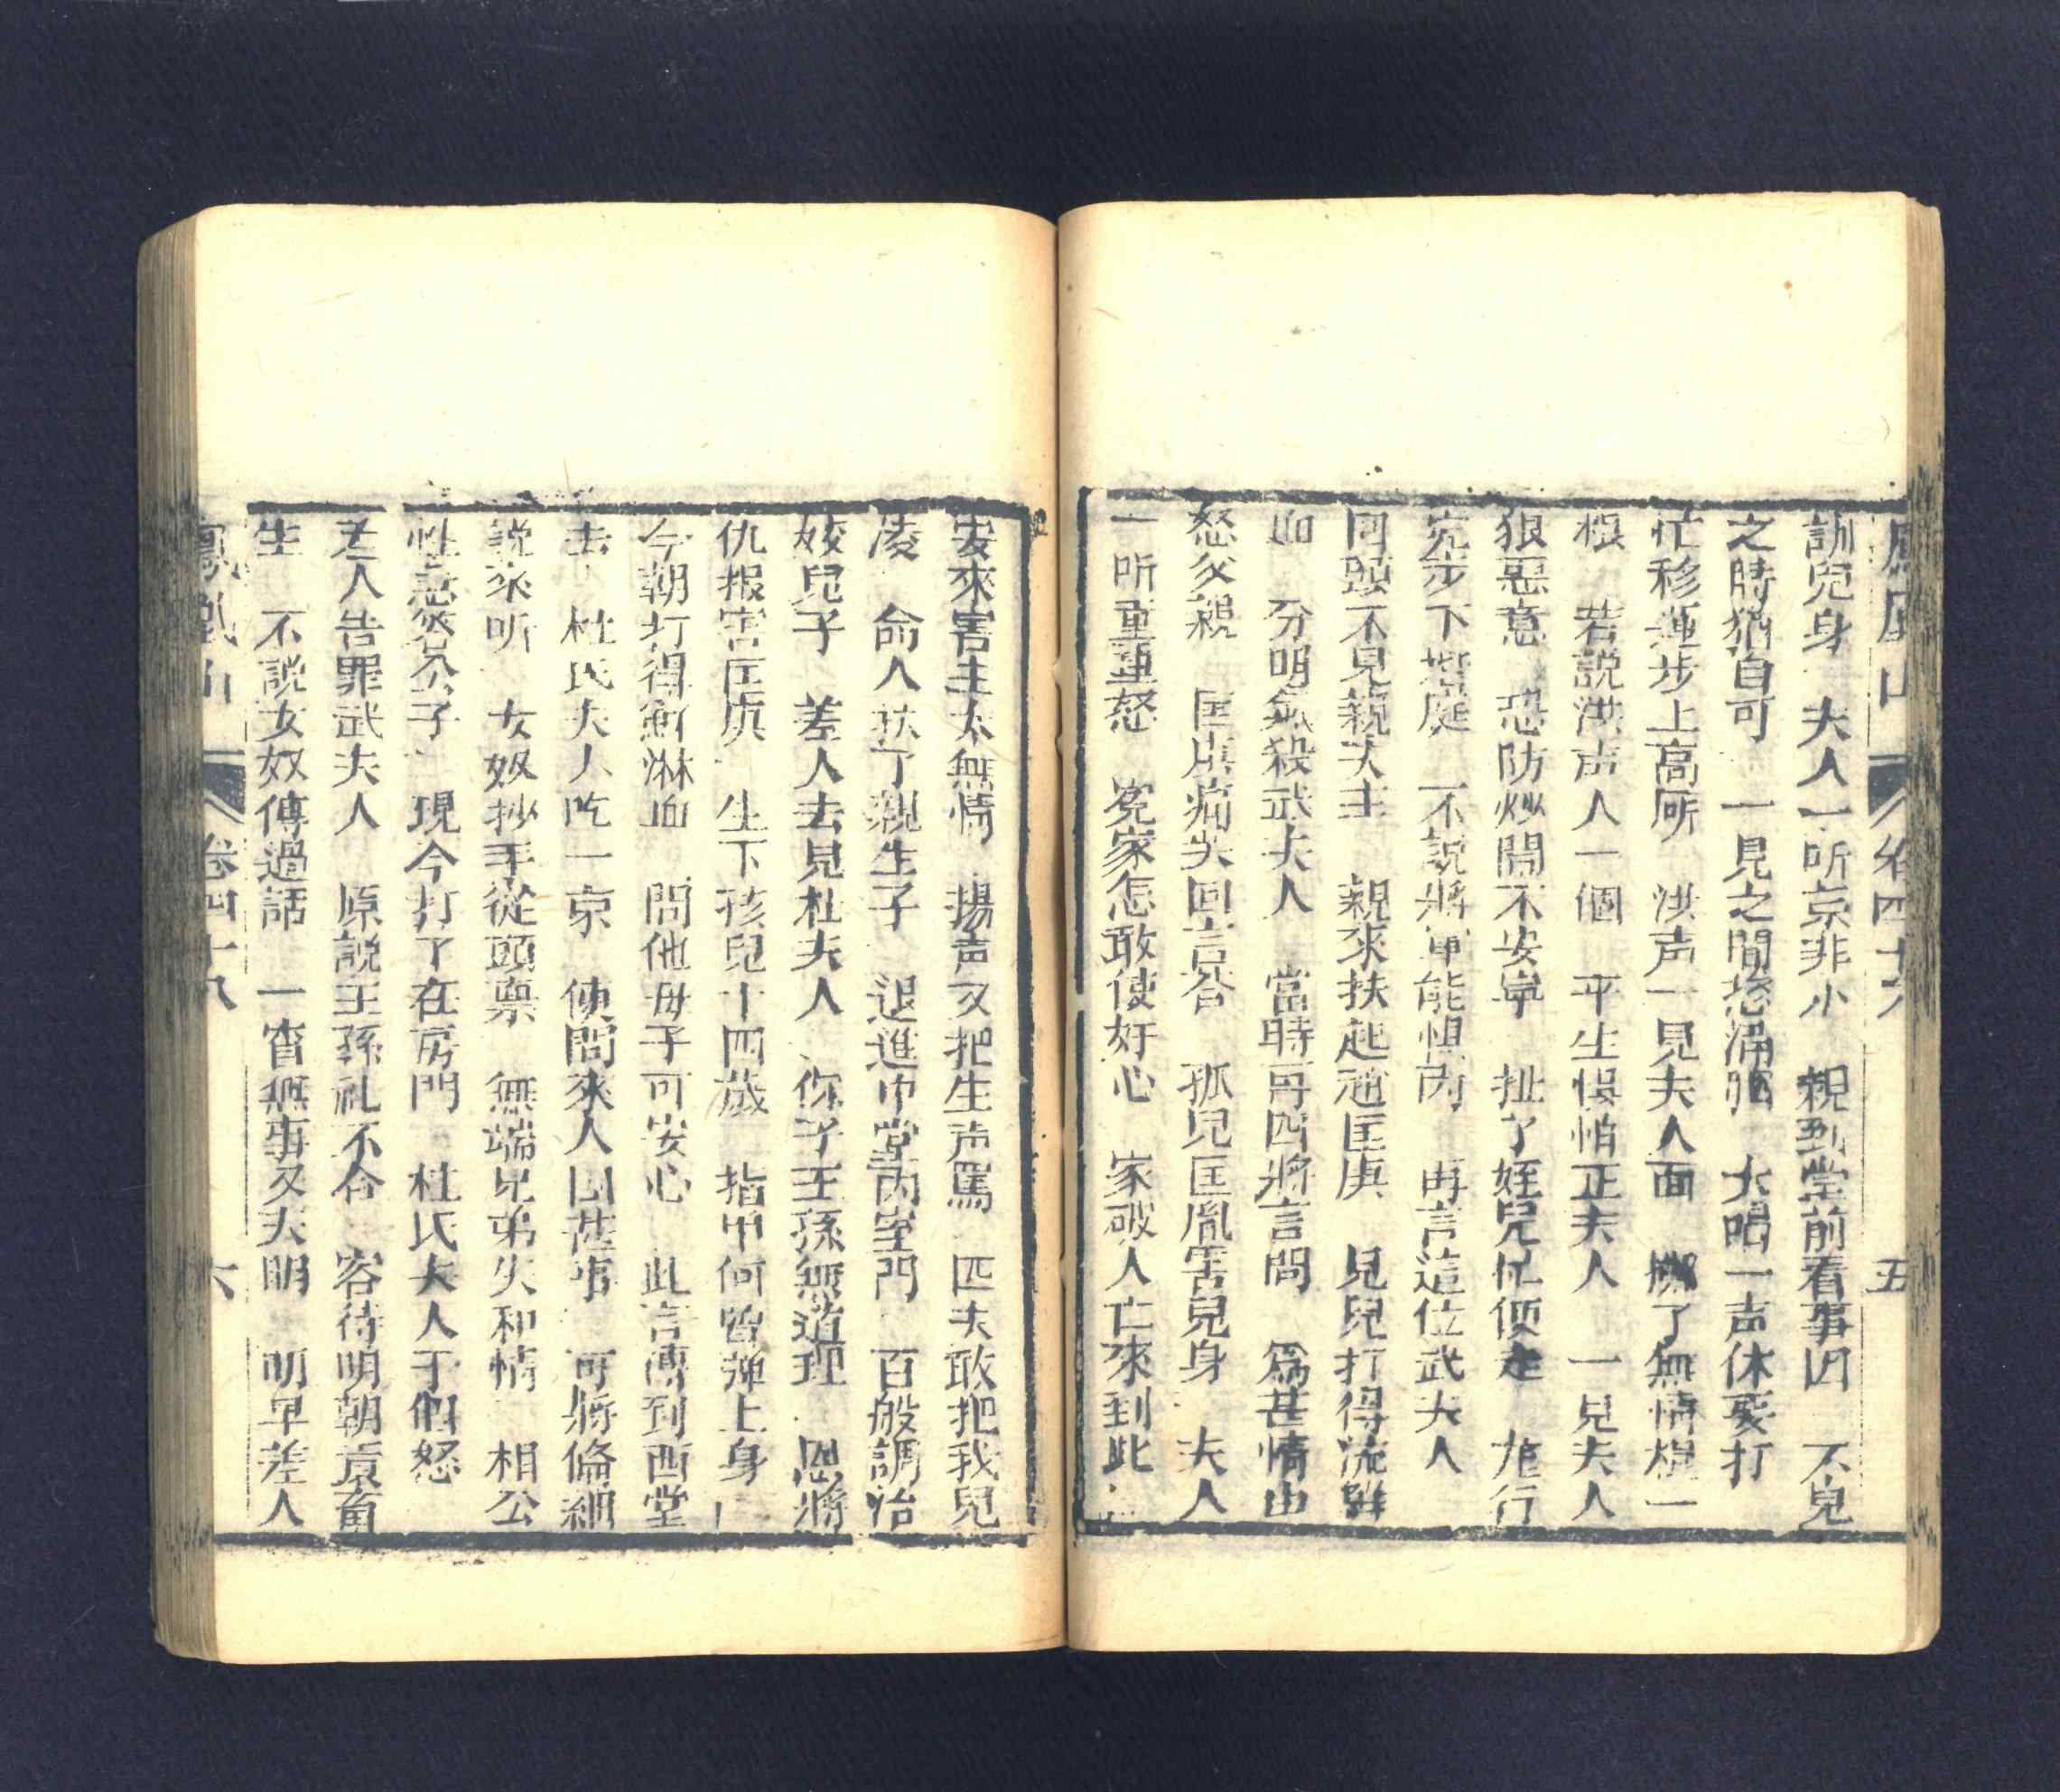 鳳凰山 卷四十八 五
訓兒身 夫人一听京非小 親到堂前看事因 不見
之時猶自可 一見之間怒滿胸 大喝一声休要打
忙移蓮步上高所 洪声一見夫人面 擲了無情棍一
根 若説洪声人一個 平生惧怕正夫人 一見夫人
狠惡意 恐防炒鬧不安寧 扯了姪兒忙便走 龍行
虎步下堦庭 不説將軍能惧内 再言這位武夫人
回頭不見親夫主 親來扶起趙匡庚 見兒打得流鮮
血 分明氣殺武夫人 當時再四將言問 爲甚情由
怒父親 匡庚痛哭回言答 孤兒匡胤害兒身 夫人
一听重重怒 冤家怎敢使奸心 家破人亡來到此
安來害主太無情 揚声又把生声罵 匹夫敢把我兒
凌 命人扶了親生子 退進中堂内室門 百般調治
姣兒子 差人去見杜夫人 你子王孫無道理 恩將
仇报害匡庚 生下孩兒十四歲 指甲何曾弹上身
今朝打得鮮淋血 問他母子可安心 此言傳到西堂
去 杜氏夫人吃一京 便問來人因甚事 可將俻細
説來听 女奴抄手從頭禀 無端兄弟失和情 相公
性急答公子 現今打了在房門 杜氏夫人于個怒
差人告罪武夫人 原説王孫礼不合 容待明朝責畜
生 不説女奴傳過話 一宵無事又天明 明早差人
鳳凰山 卷四十八 六